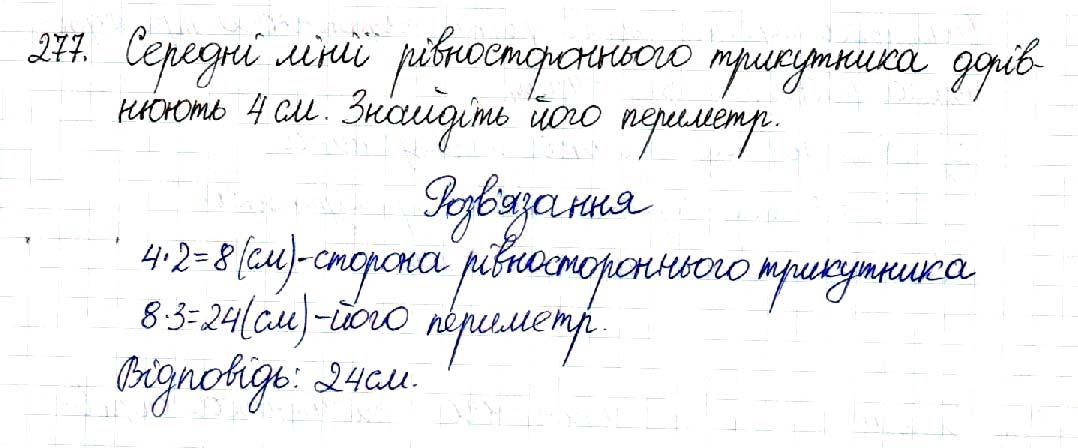 277. Середні лінії рівностороннього трикутника дорів-
нюють 4 см. Знайдіть його периметр.
Розв'язання
4·2=8(см)-сторона рівностороннього трикутника
8·3=24(см)-його периметр.
Відповідь: 24см.